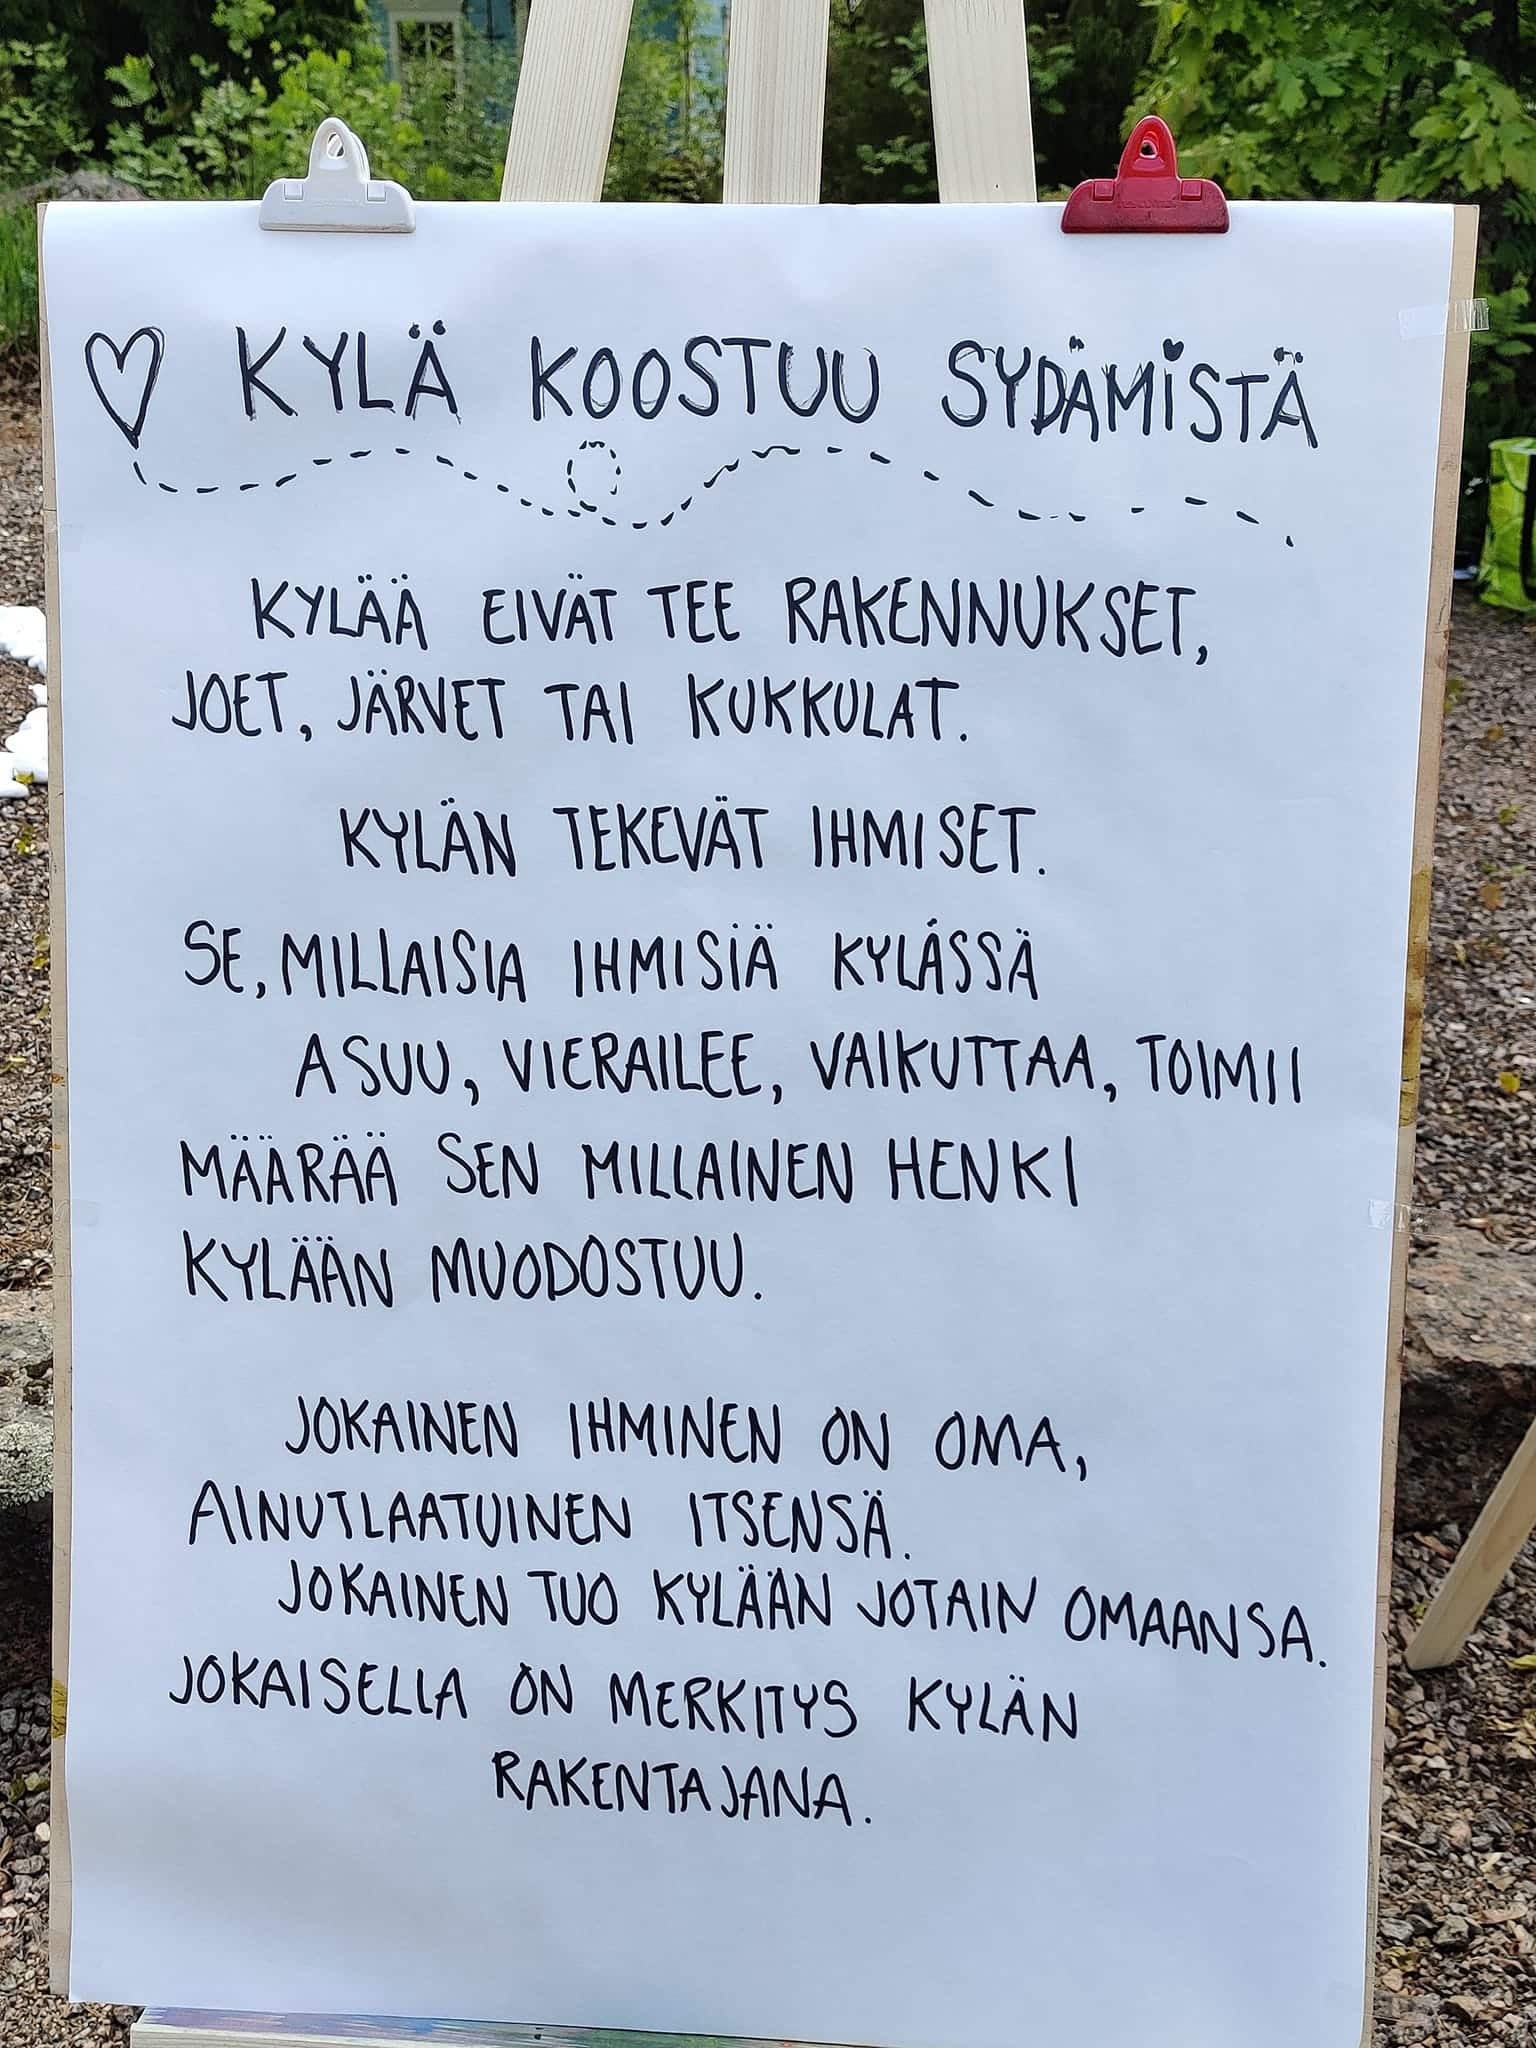 KYLÄ KOOSTUU SYDÄMISTÄ
KYLÄÄ EIVÄT TEE RAKENNUKSET,
JOET, JÄRVET TAI KUKKULAT.
KYLÄN TEKEVÄT IHMISET.
SE, MILLAISIA IHMISIÄ KYLÄSSÄ
ASUU, VIERAILEE, VAIKUTTAA, TOIMII
MÄÄRÄÄ SEN MILLAINEN HENKI
KYLÄÄN MUODOSTUU.
JOKAINEN IHMINEN ON OMA,
AINUTLAATUINEN ITSENSÄ.
JOKAINEN TUO KYLÄÄN JOTAIN OMAANSA.
JOKAISELLA ON MERKITYS KYLÄN
RAKENTAJANA.